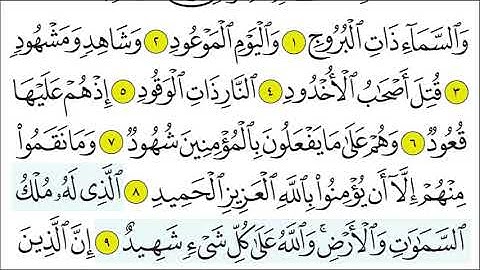 وَالسَّمَآءِ ذَاتِ الْبُرُوجِ ١ وَالْيَوْمِ الْمَوْعُودِ ٢ وَشَاهِدٍ وَمَشْهُودٍ
٣ قُتِلَ أَصْحَٰبُ الْأُخْدُودِ ٤ النَّارِ ذَاتِ الْوَقُودِ ٥ إِذْ هُمْ عَلَيْهَا
قُعُودٌ ٦ وَهُمْ عَلَىٰ مَا يَفْعَلُونَ بِالْمُؤْمِنِينَ شُهُودٌ ٧ وَمَا نَقَمُوا۟
مِنْهُمْ إِلَّآ أَن يُؤْمِنُوا۟ بِاللَّهِ الْعَزِيزِ الْحَمِيدِ ٨ الَّذِى لَهُۥ مُلْكُ
السَّمَٰوَٰتِ وَالْأَرْضِ ۚ وَاللَّهُ عَلَىٰ كُلِّ شَىْءٍ شَهِيدٌ ٩ إِنَّ الَّذِينَ